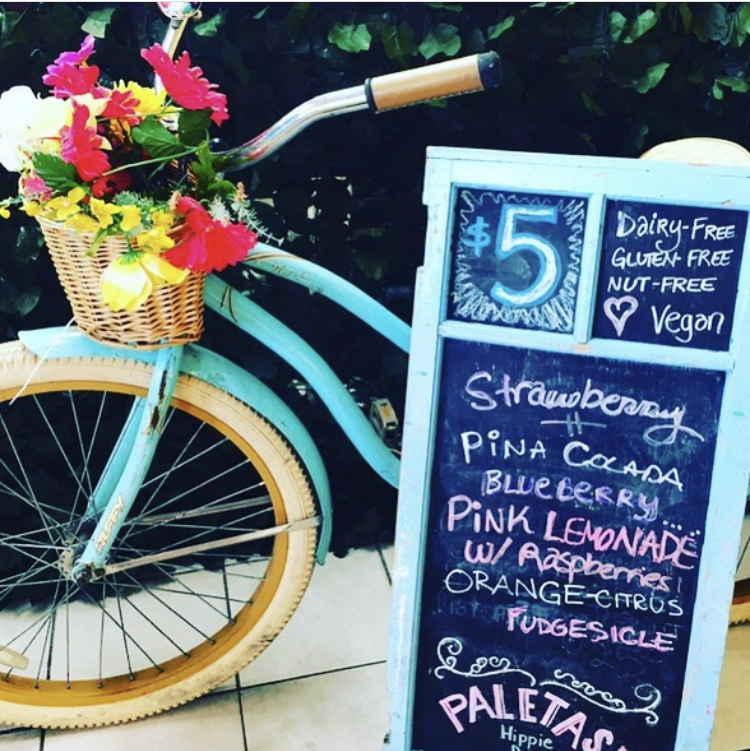 $5
Dairy-Free
Gluten-Free
Nut-Free
Vegan
Strawberry
PiNA COLADA
BLUEBERRY....
PiNK LEMONADE
w/ Raspberries
ORANGE-CITRUS
FUDGESICLE
PALETAS
Hippie
HUFFY